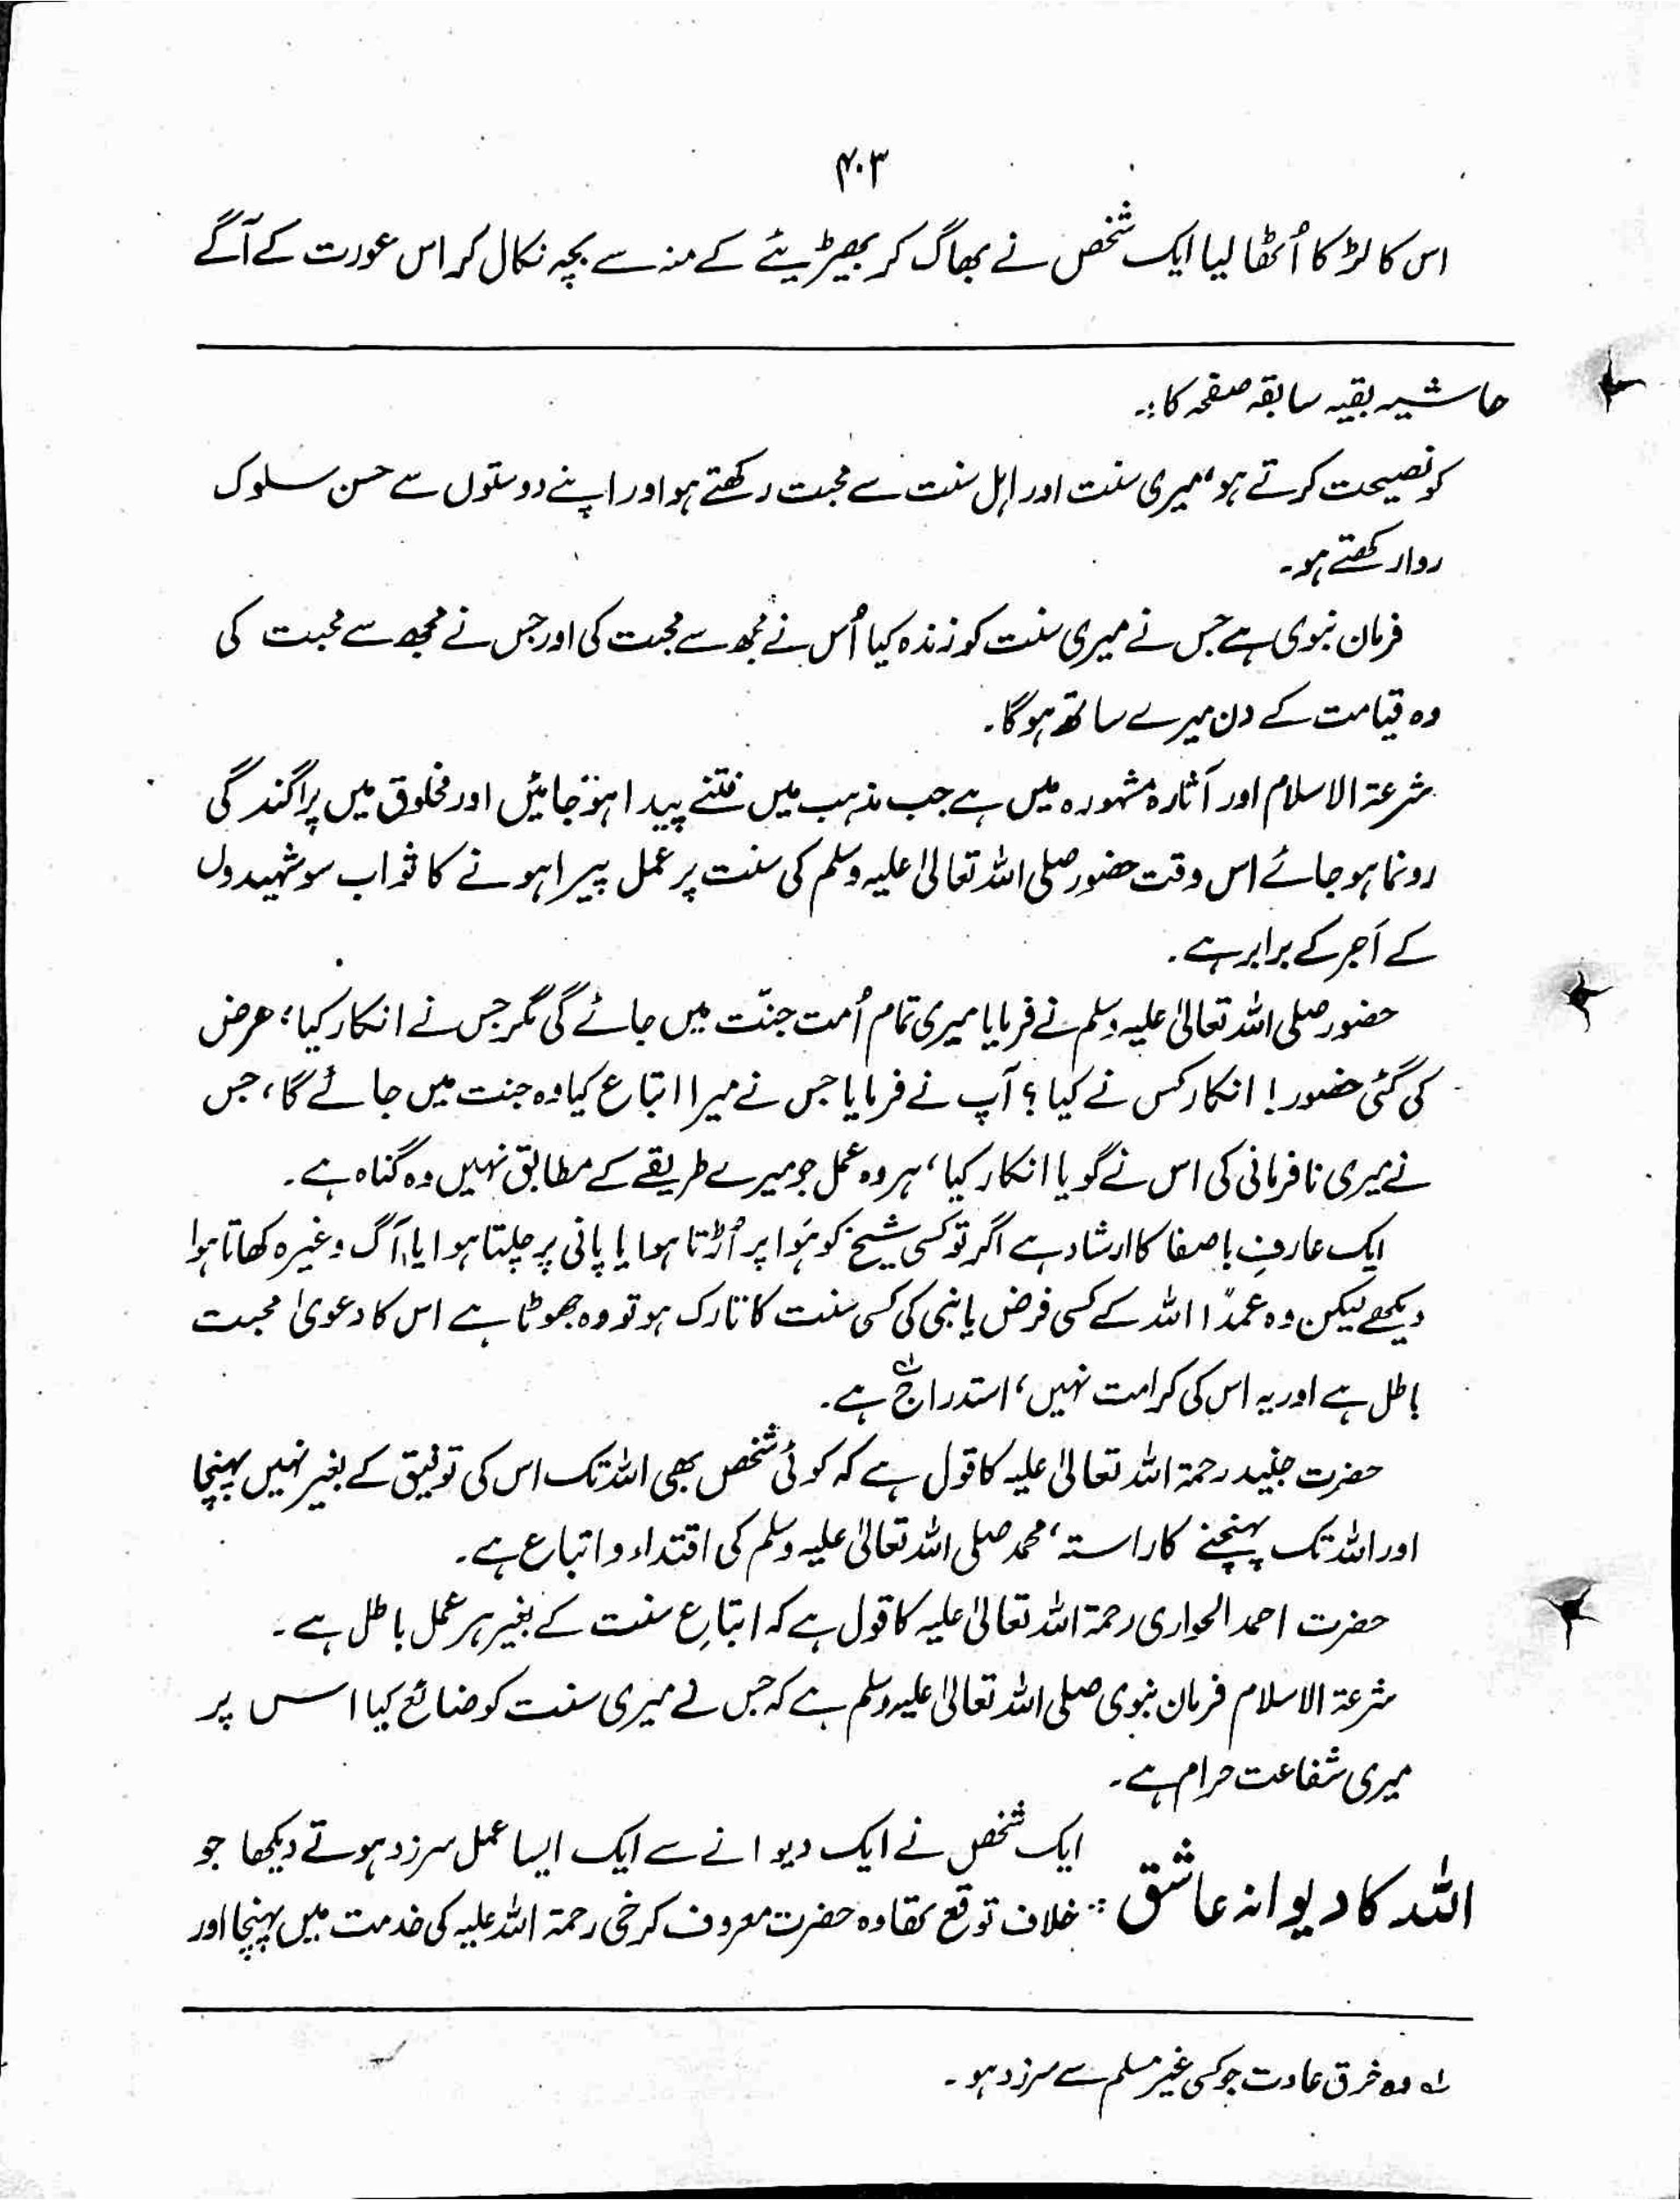 ۴۰۳
اس کا لڑکا اُٹھا لیا ایک شخص نے بھاگ کر بھیڑیئے کے منہ سے بچہ نکال کر اس عورت کے آگے
حاشیہ بقیہ سابقہ صفحہ کا :۔
کو نصیحت کرتے ہو، میری سنت اور اہل سنت سے محبت رکھتے ہو اور اپنے دوستوں سے حسن سلوک
روا رکھتے ہو۔
فرمان نبوی ہے جس نے میری سنت کو زندہ کیا اُس نے مجھ سے محبت کی اور جس نے مجھ سے محبت کی
وہ قیامت کے دن میرے ساتھ ہوگا۔
شرعۃ الاسلام اور آثارہ مشہورہ میں ہے جب مذہب میں فتنے پیدا ہو جائیں اور مخلوق میں پراگندگی
رونما ہو جائے اس وقت حضور صلی اللہ تعالیٰ علیہ وسلم کی سنت پر عمل پیرا ہونے کا ثواب سو شہیدوں
کے اَجر کے برابر ہے۔
حضور صلی اللہ تعالیٰ علیہ وسلم نے فرمایا میری تمام اُمت جنّت میں جائے گی مگر جس نے انکار کیا، عرض
کی گئی حضور! انکار کس نے کیا؟ آپ نے فرمایا جس نے میرا اتباع کیا وہ جنت میں جائے گا، جس
نے میری نافرمانی کی اس نے گویا انکار کیا، ہر وہ عمل جو میرے طریقے کے مطابق نہیں وہ گناہ ہے۔
ایک عارفِ باصفا کا ارشاد ہے اگر تو کسی شیخ کو ہَوا پر اُڑتا ہوا یا پانی پر چلتا ہوا یا آگ وغیرہ کھاتا ہوا
دیکھے لیکن وہ عمدًا اللہ کے کسی فرض یا نبی کی کسی سنت کا تارک ہو تو وہ جھوٹا ہے اس کا دعویٰ محبت
باطل ہے اور یہ اس کی کرامت نہیں، استدراج ؂۱ ہے۔
حضرت جنید رحمۃ اللہ تعالیٰ علیہ کا قول ہے کہ کوئی شخص بھی اللہ تک اس کی توفیق کے بغیر نہیں پہنچا
اور اللہ تک پہنچنے کا راستہ، محمد صلی اللہ تعالیٰ علیہ وسلم کی اقتداء و اتباع ہے۔
حضرت احمد الحواری رحمۃ اللہ تعالیٰ علیہ کا قول ہے کہ اتباعِ سنت کے بغیر ہر عمل باطل ہے۔
شرعۃ الاسلام فرمان نبوی صلی اللہ تعالیٰ علیہ وسلم ہے کہ جس نے میری سنت کو ضائع کیا اس پر
میری شفاعت حرام ہے۔
اللہ کا دیوانہ عاشق :: ایک شخص نے ایک دیوانے سے ایک ایسا عمل سرزد ہوتے دیکھا جو
خلاف توقع تھا وہ حضرت معروف کرخی رحمۃ اللہ علیہ کی خدمت میں پہنچا اور
؂۱ وہ خرق عادت جو کسی غیر مسلم سے سرزد ہو۔